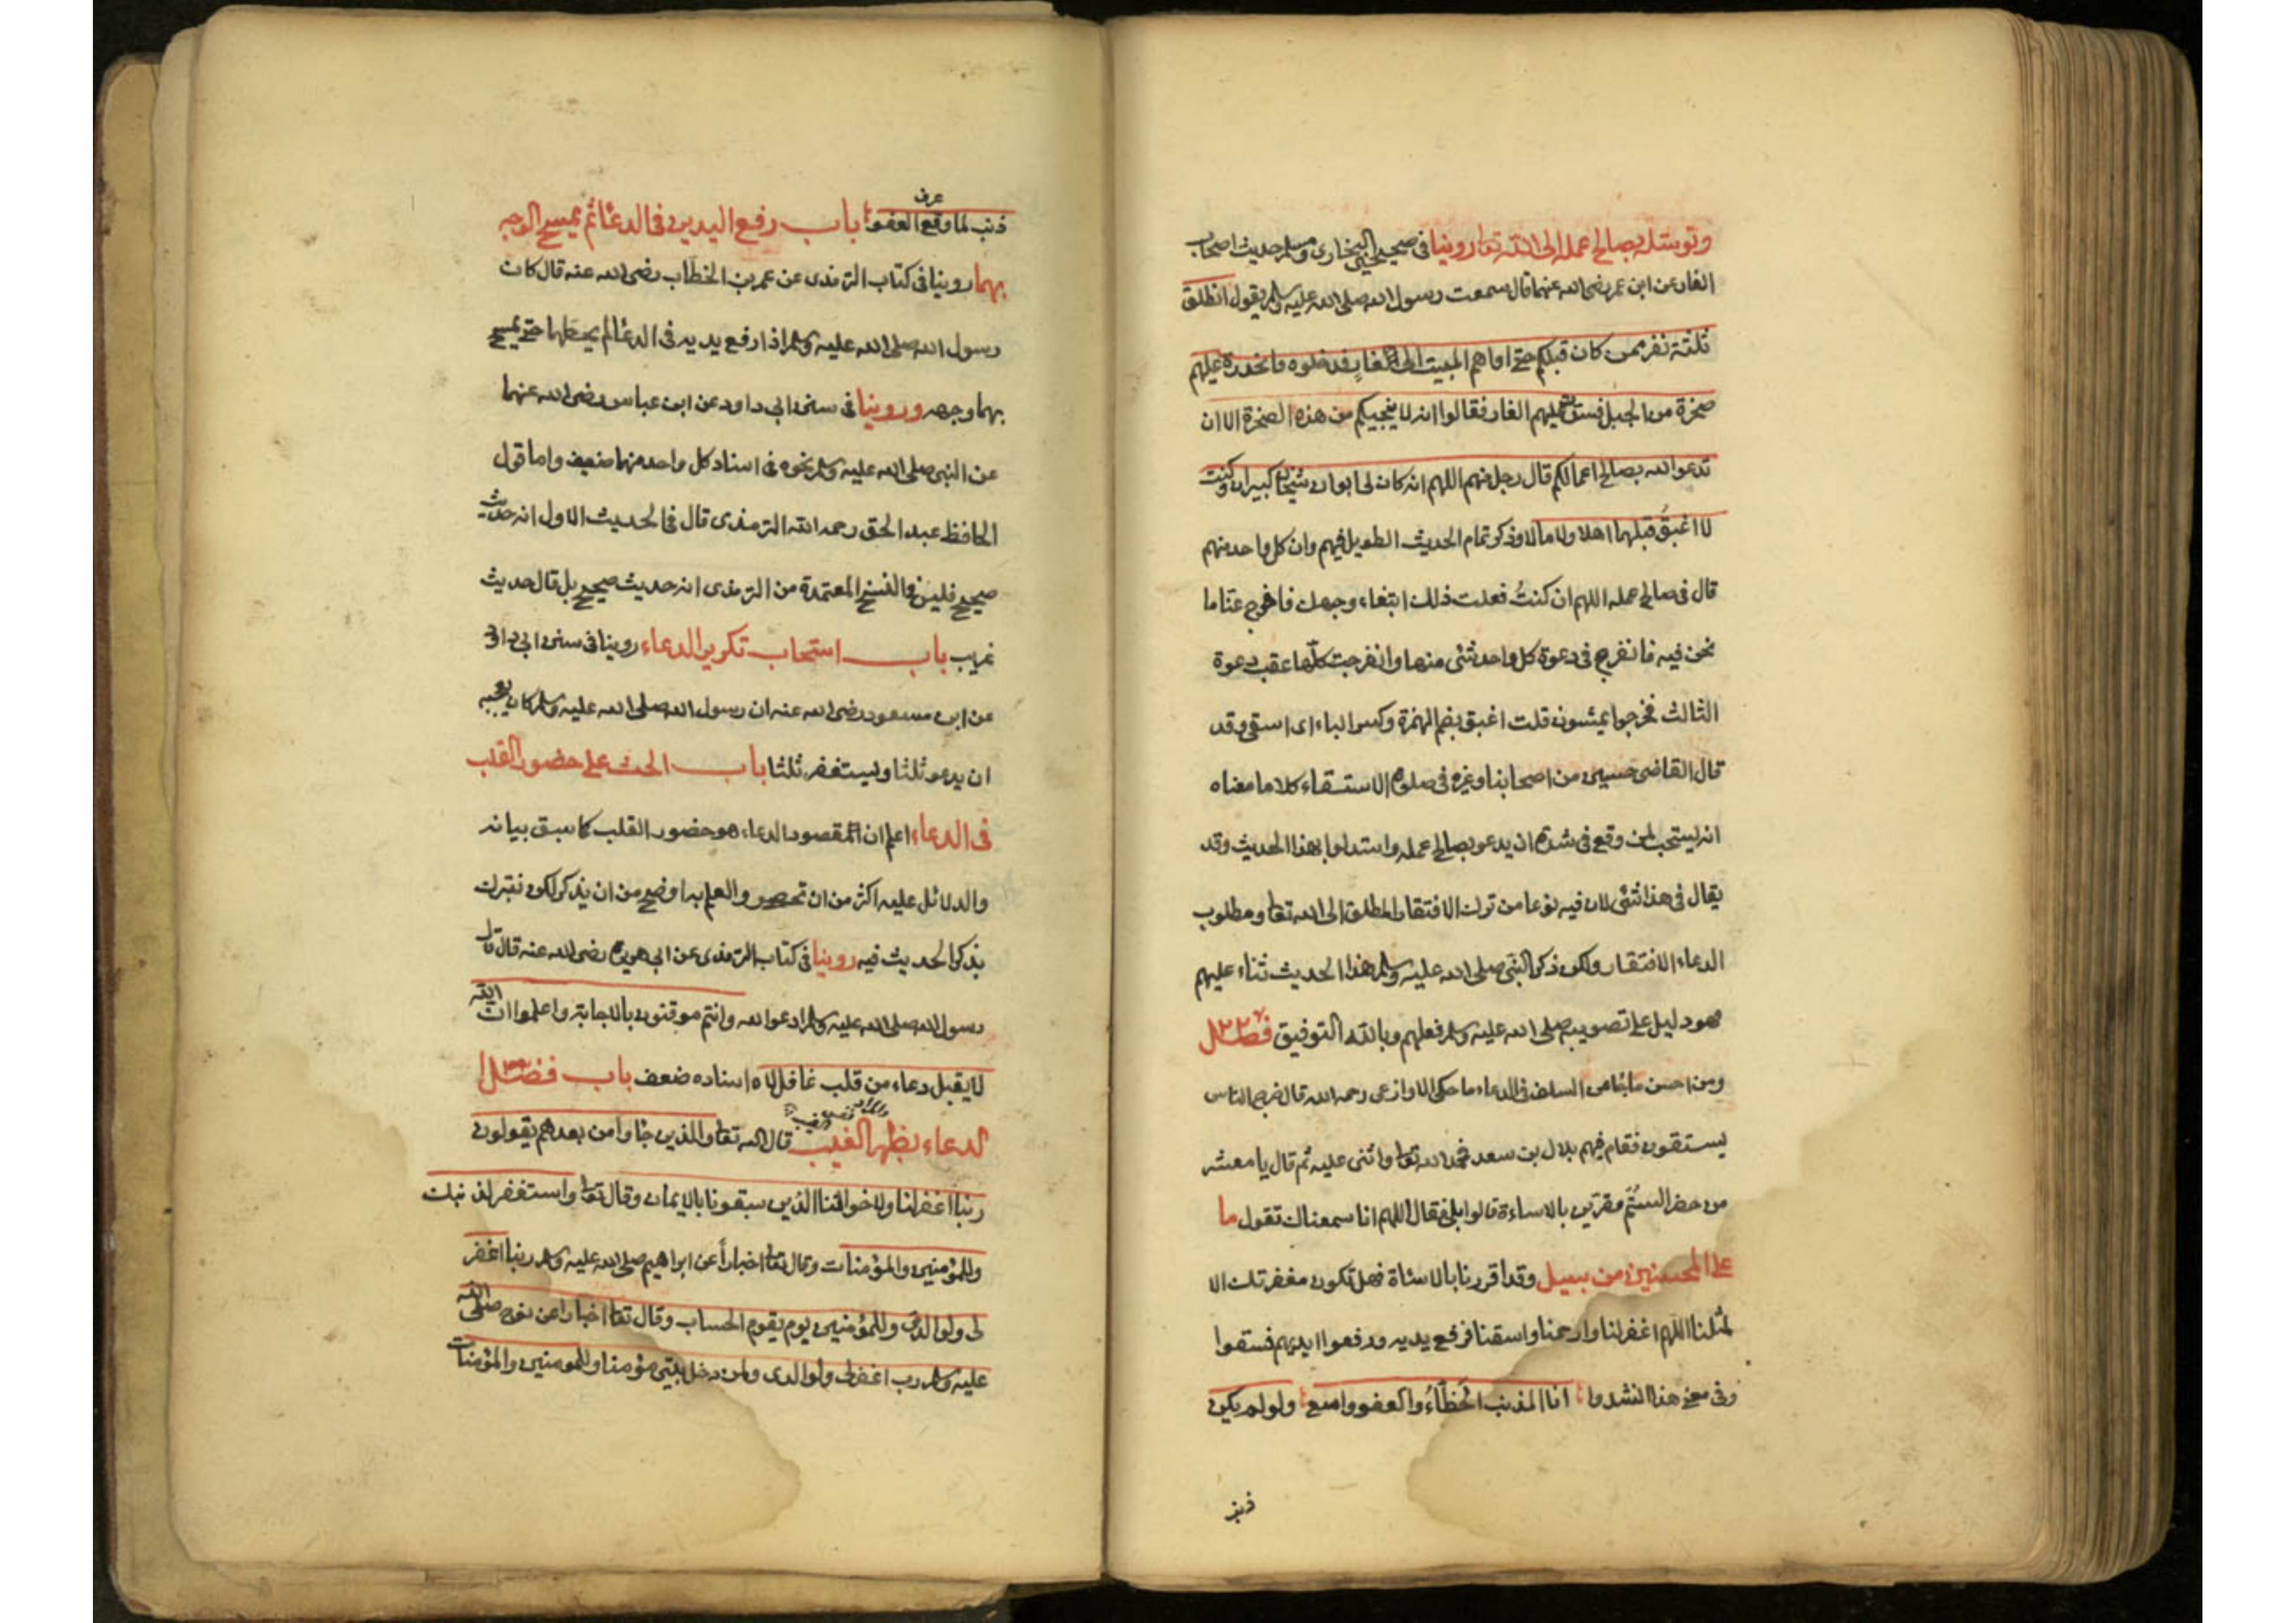 وتوسله بصالح عمله الى الله تعا روينا في صحيحي البخاري ومسلم حديث اصحاب
الغار عن ابن عمر رضى الله عنهما قال سمعت رسول الله صلى الله عليه وسلم يقول انطلق
ثلثة نفر ممن كان قبلكم حتى اواهم المبيت الى الغار فدخلوه فانحدرت عليهم
صخرة من الجبل فسدت عليهم الغار فقالوا انه لا ينجيكم من هذه الصخرة الا ان
تدعوا الله بصالح اعمالكم قال رجل منهم اللهم انه كان لى ابوان شيخان كبيران وكنت
لا اغبق قبلهما اهلا ولا مالا وذكر تمام الحديث الطويل فيهم وان كل واحد منهم
قال في صالح عمله اللهم ان كنتُ فعلت ذلك ابتغاء وجهك فافرج عنا ما
نحن فيه فانفرج في دعوة كل واحد شئ منها وانفرجت كلّها عقب دعوة
الثالث فخرجوا يمشون قلت اغبق بضم الهمزة وكسر الباء اى اسقى وقد
قال القاضى حسين من اصحابنا وغيره فى صلوة الاستسقاء كلاما معناه
انه يستحب لمن وقع فى شدة ان يدعو بصالح عمله واستدلوا بهذا الحديث وقد
يقال في هذا شئ لان فيه نوعا من ترك الافتقار المطلق الى الله تعا ومطلوب
الدعاء الافتقار ولكن ذكر النبى صلى الله عليه وسلم هذا الحديث ثناء عليهم
فهو دليل على تصويبه صلى الله عليه وسلم فعلهم وبالله التوفيق فصل
ومن احسن ما جاء من السلف فى الدعاء ما حكى الاوزاعى رحمه الله قال خرج الناس
يستقون فقام فيهم بلال بن سعد فحمد الله تعا واثنى عليه ثم قال يا معشر
من حضر الستُم مقرين بالاساءة قالوا بلى فقال اللهم انا سمعناك تقول ما
على المحسنين من سبيل وقد اقررنا بالاساة فهل تكون مغفرتك الا
لمثلنا اللهم اغفر لنا وارحمنا واسقنا فرفع يديه ورفعوا ايديهم فسقوا
وفى معنى هذا انشدوا انا المذنب الخطّاءُ والعفو واسع ولو لم يكن
ذنب
عرف
ذنب لما وقع العفو باب رفع اليدين فى الدعا ثم يمسح الوجه
بهما روينا فى كتاب الترمذى عن عمر بن الخطاب رضى الله عنه قال كان
رسول الله صلى الله عليه وسلم اذا رفع يديه فى الدعا لم يحطهما حتى يمسح
بهما وجهه وروينا فى سنن ابى داود عن ابن عباس رضى الله عنهما
عن النبى صلى الله عليه وسلم نحوه فى اسناد كل واحد منهما ضعيف واما قول
الحافظ عبد الحق رحمه الله الترمذى قال فى الحديث الاول انه حديث
صحيح فليس فى النسخ المعتمدة من الترمذى انه حديث صحيح بل قال حديث
غريب باب استحباب تكرير الدعاء روينا فى سنن ابى داود
عن ابن مسعود رضى الله عنه ان رسول الله صلى الله عليه وسلم كان يعجبه
ان يدعو ثلثا ويستغفر ثلثا باب الحث على حضور القلب
فى الدعاء اعلم ان المقصود الدعاء هو حضور القلب كما سبق بيانه
والدلائل عليه اكثر من ان تحصر والعلم به اوضح من ان يذكر لكن نتبرك
بذكر الحديث فيه روينا فى كتاب الترمذى عن ابى هريرة رضى الله عنه قال قال
رسول الله صلى الله عليه وسلم ادعوا الله وانتم موقنون بالاجابة واعلموا ان الله
لا يقبل دعاء من قلب غافل لاه اسناده ضعف باب فضل
الدعاء بظهر الغيب قال الله تعا والذين جاوا من بعدهم يقولون
ربنا اغفر لنا ولاخواننا الذين سبقونا بالايمان وقال تعا واستغفر لذنبك
وللمؤمنين والمؤمنات وقال تعا اخباراً عن ابراهيم صلى الله عليه وسلم ربنا اغفر
لى ولوالدى وللمؤمنين يوم يقوم الحساب وقال تعا اخبارا عن نوح صلى الله
عليه وسلم رب اغفر لى ولوالدى ولمن دخل بيتى مؤمنا وللمومنين والمؤمنات